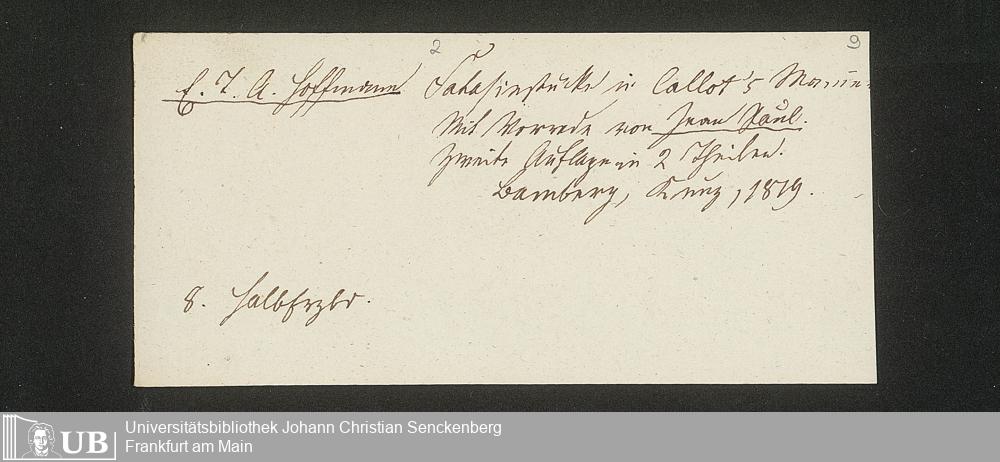 2 9
E. T. A. Hoffmann Fatasiestücke in Callot's Manier.
Mit Vorrede von Jean Paul.
Zweite Auflage in 2 Theilen.
Bamberg, Kunz, 1819.
8. Halbfrzbd.
UB
Universitätsbibliothek Johann Christian Senckenberg
Frankfurt am Main